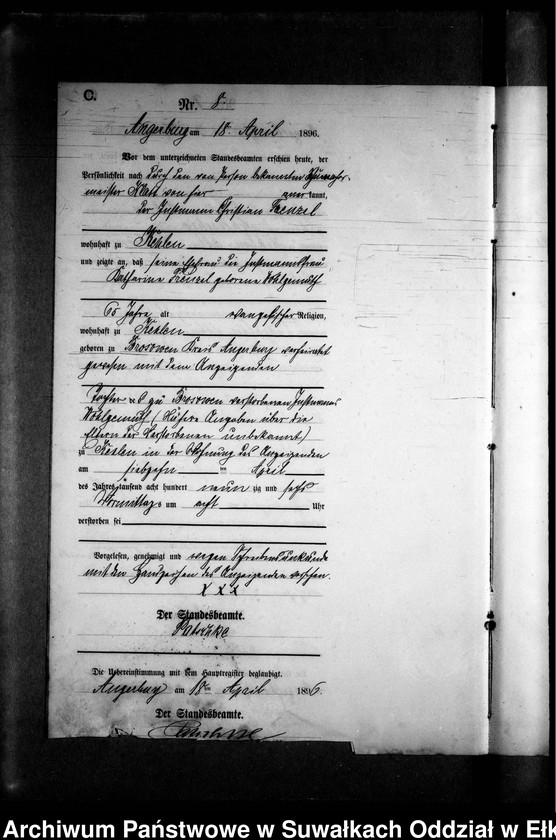 C.
Nr. 8.
Angerburg am 18. April 1896.
Vor dem unterzeichneten Standesbeamten erschien heute, der
Persönlichkeit nach durch den von Person bekannten
meister Klatt von hier anerkannt,
der Instmann Christian Frenzel
wohnhaft zu Kehlen
und zeigte an, daß seine Ehefrau die Instmannsfrau
Katharine Frenzel geborene Wohlgemuth
65 Jahre alt evangelischer Religion,
wohnhaft zu Kehlen
geboren zu Brosowen Kreis Angerburg verheirathet
gewesen mit dem Anzeigenden
Tochter des zu Brosowen verstorbenen Instmanns
Wohlgemuth (Nähere Angaben über die
Eltern der Verstorbenen unbekannt)
zu Kehlen in der Wohnung des Anzeigenden
am siebzehn ten April
des Jahres tausend acht hundert neun zig und sechs
Vormittags um acht Uhr
verstorben sei
Vorgelesen, genehmigt und wegen Schreibensunkunde
mit den Handzeichen des Anzeigenden versehen.
X X X
Der Standesbeamte.
Die Uebereinstimmung mit dem Hauptregister beglaubigt.
Angerburg am 18ten April 1896.
Der Standesbeamte.
Archiwum Państwowe w Suwałkach Oddział w Ełk